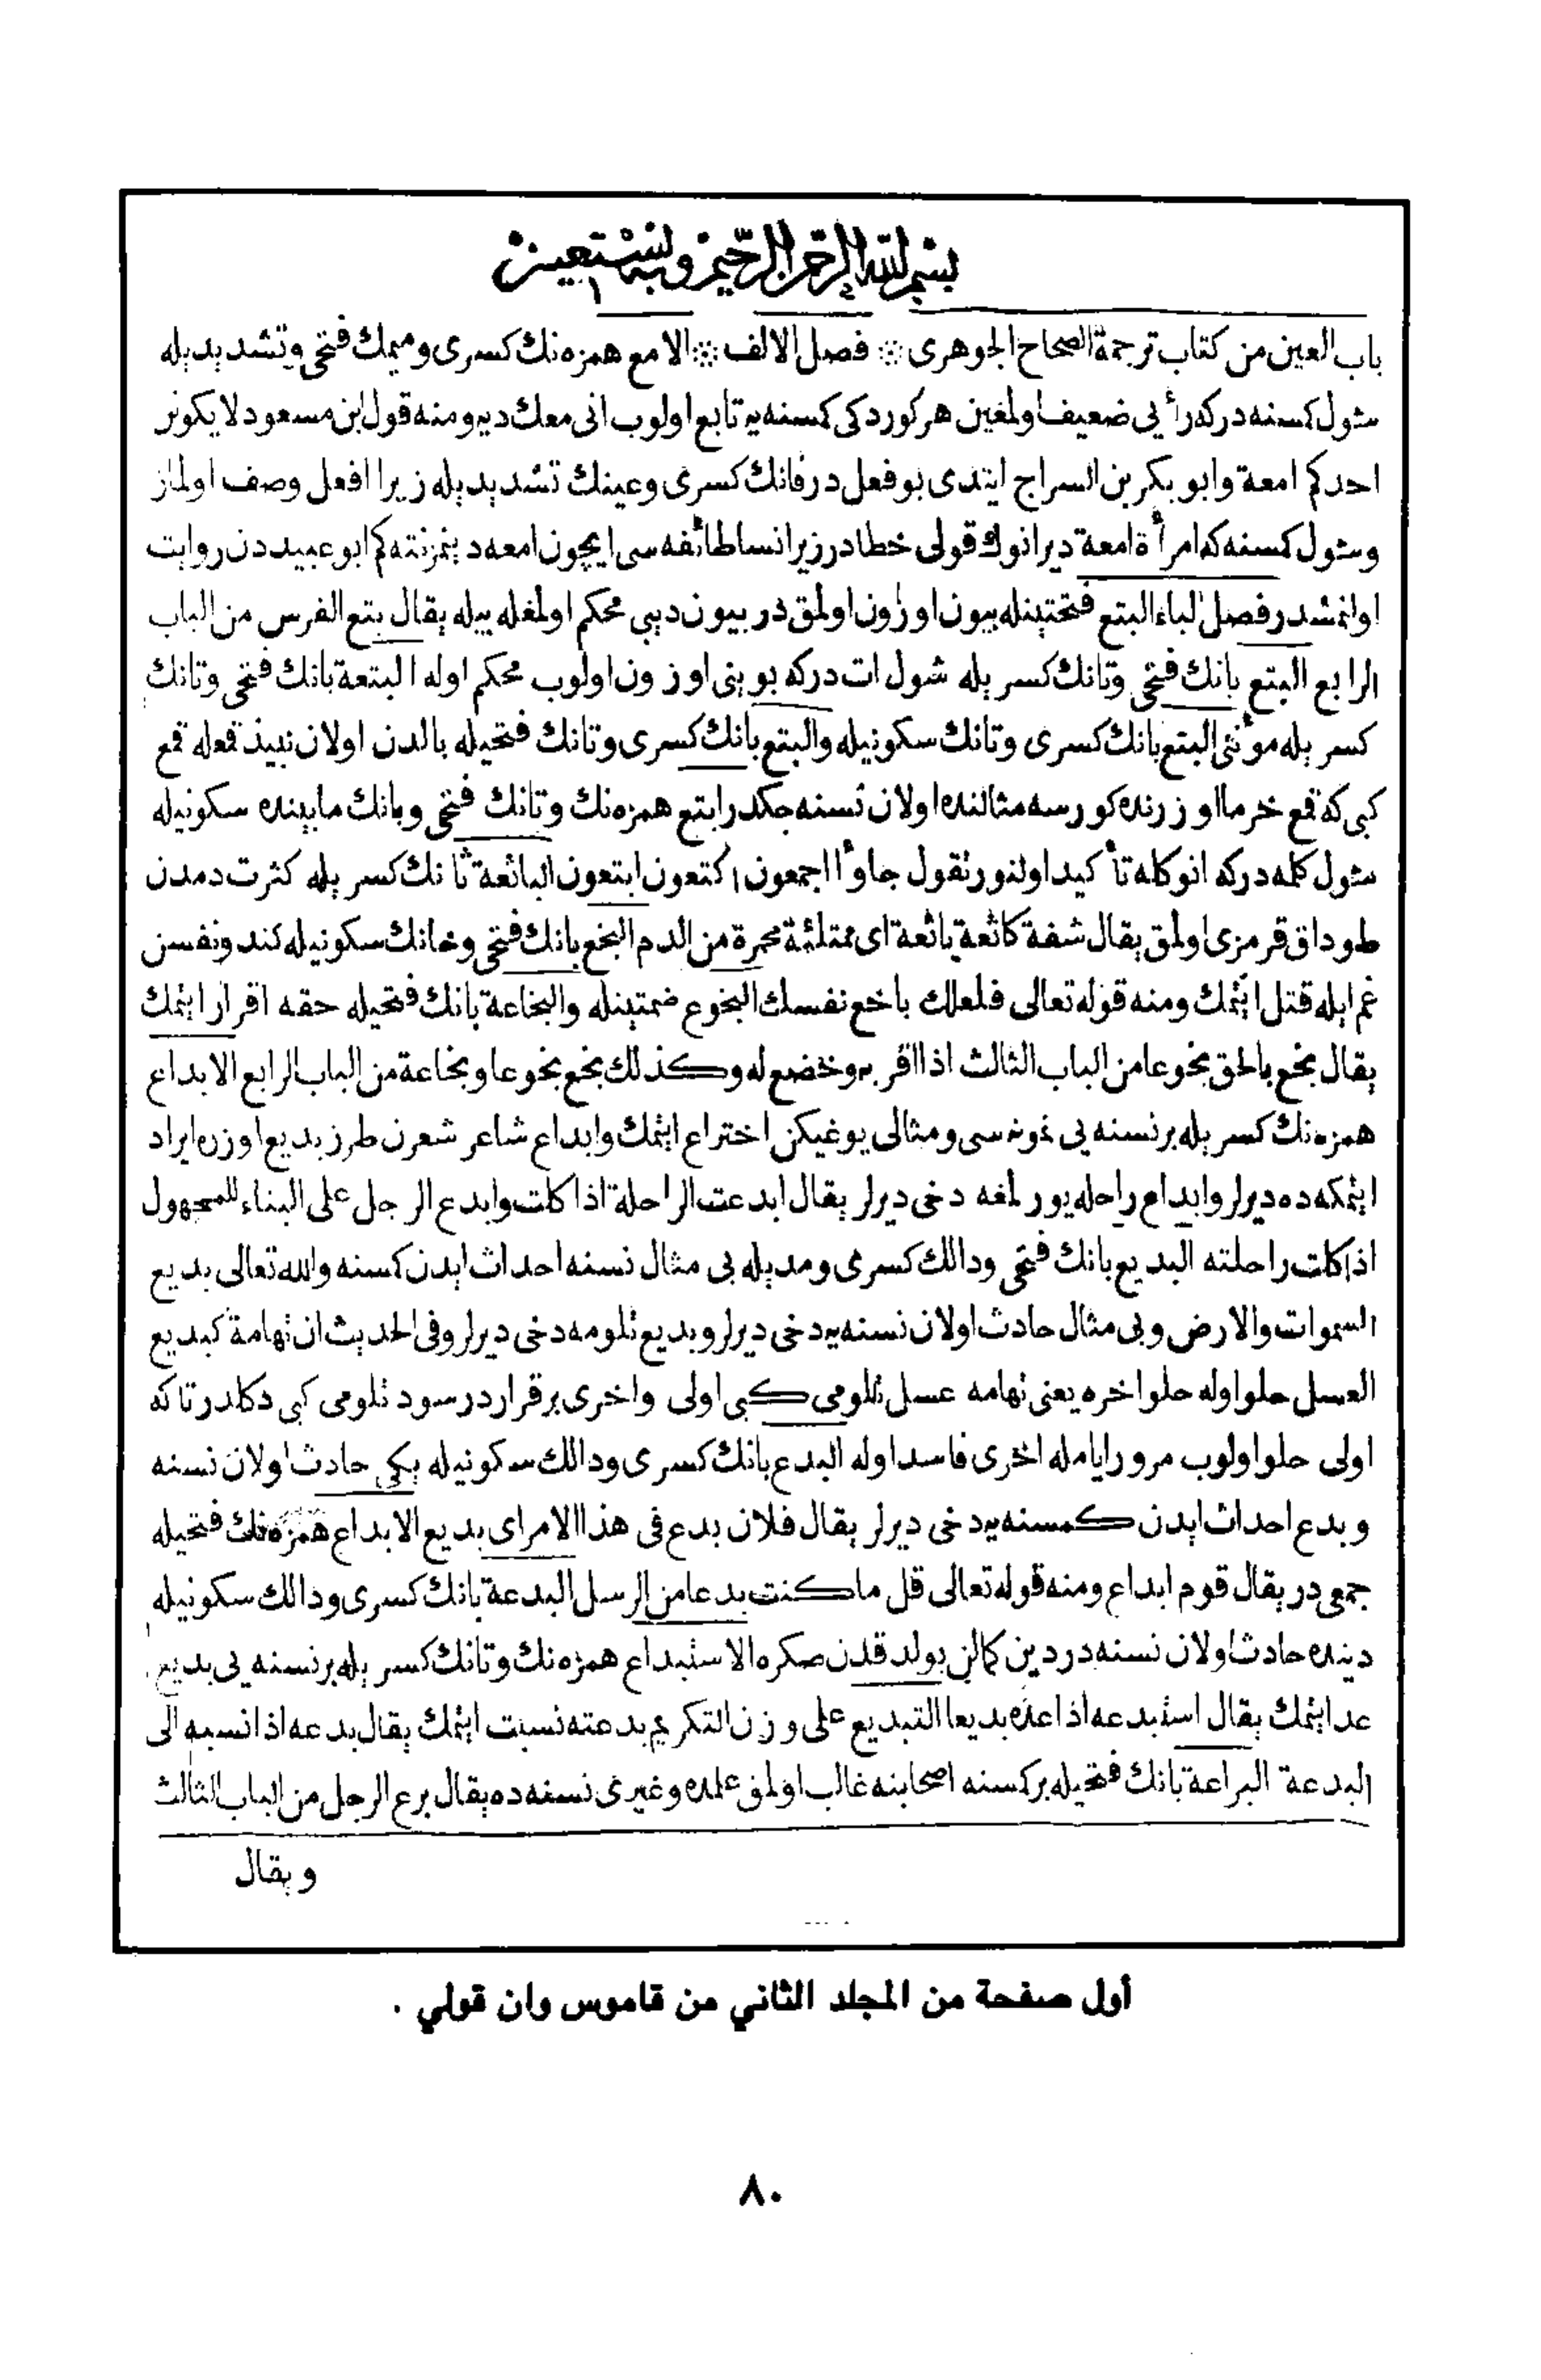 بسم الله الرحمن الرحيم وبه نستعين
باب العين من كتاب ترجمة الصحاح الجوهرى ۞ فصل الالف ۞ الامع همزه نك كسرى وميمك فتحى وتشديديله
شول كسنه دركه رأيي ضعيف اولمغين هركورد كى كمسنه يه تابع اولوب انى معك ديه ومنه قول ابن مسعود لا يكونن
احدكم امعة وابو بكر بن السراج ايتدى بو فعل در فانك كسرى وعينك تشديديله زيرا افعل وصف اولماز
وشول كمسنه كه امرأة امعة ديرانوك قولى خطا در زيرا نسا طائفه سى ايچون امعه دينمز نته كم ابو عبيددن روايت
اولنمشدر فصل الباء البتع فتحتينله بيون اوزون اولمق در بيون ديبى محكم اولمغله بيله يقال بتع الفرس من الباب
الرابع البتع بانك فتحى وتانك كسريله شول ات دركه بوينى اوزون اولوب محكم اوله البتعة بانك فتحى وتانك
كسريله مونثى البتع بانك كسرى وتانك سكونيله والبتع بانك كسرى وتانك فتحيله بالدن اولان نبيذ قمعله قمع
كبى كه قمع خرما اوزرنده كورسه مثالنده اولان نسنه جكدر ابتع همزه نك وتانك فتحى وبانك مابينده سكونيله
شول كله دركه انوكله تأكيد اولنور تقول جاوأ اجمعون اكتعون ابتعون الباثعة ثانك كسريله كثرت دمدن
طوداق قرمزى اولمق يقال شفة كاثعة باثعة اى ممتلئة محمرة من الدم البخع بانك فتحى وخانك سكونيله كندو نفسن
غم ايله قتل ايتمك ومنه قوله تعالى فلعلك باخع نفسك البخوع ضمتينله والبخاعة بانك فتحيله حقه اقرار ايتمك
يقال بخع بالحق بخوعا من الباب الثالث اذا اقر به وخضع له وكذلك بخع بخوعا وبخاعة من الباب الرابع الابداع
همزه نك كسريله برنسنه يى نمونه سى ومثالى يوغيكن اختراع ايتمك وابداع شاعر شعرن طرز بديع اوزره ايراد
ايتمكه ده ديرلر وابداع راحله يورلمغه دخى ديرلر يقال ابدعت الراحلة اذا كلت وابدع الرجل على البناء للمجهول
اذا كلت راحلته البديع بانك فتحى ودالك كسرى ومديله بى مثال نسنه احداث ايدن كسنه والله تعالى بديع
السموات والارض وبى مثال حادث اولان نسنه يه دخى ديرلر وبديع تلومه دخى ديرلر وفى الحديث ان تهامة كبديع
العسل حلو اوله حلو اخره يعنى تهامه عسل تلومى كبى اولى واخرى برقراردر سود تلومى كبى دكلدر تاكه
اولى حلو اولوب مرور ايامله اخرى فاسد اوله البدع بانك كسرى ودالك سكونيله يكى حادث اولان نسنه
وبدع احداث ايدن كمسنه يه دخى ديرلر يقال فلان بدع فى هذا الامر اى بديع الابداع همزه نك فتحيله
جمعى در يقال قوم ابداع ومنه قوله تعالى قل ما كنت بدعا من الرسل البدعة بانك كسرى ودالك سكونيله
دينده حادث اولان نسنه در دين كمالن بولدقدن صكره الاستبداع همزه نك وتانك كسريله برنسنه يى بديع
عد ايتمك يقال استبدعه اذا عده بديعا التبديع على وزن التكريم بدعته نسبت ايتمك يقال بدعه اذا نسبه الى
البدعة البراعة بانك فتحيله بر كسنه اصحابنه غالب اولمق علمده وغيرى نسنه ده يقال برع الرجل من الباب الثالث
ويقال
أول صفحة من المجلد الثاني من قاموس وان قولي .
٨٠